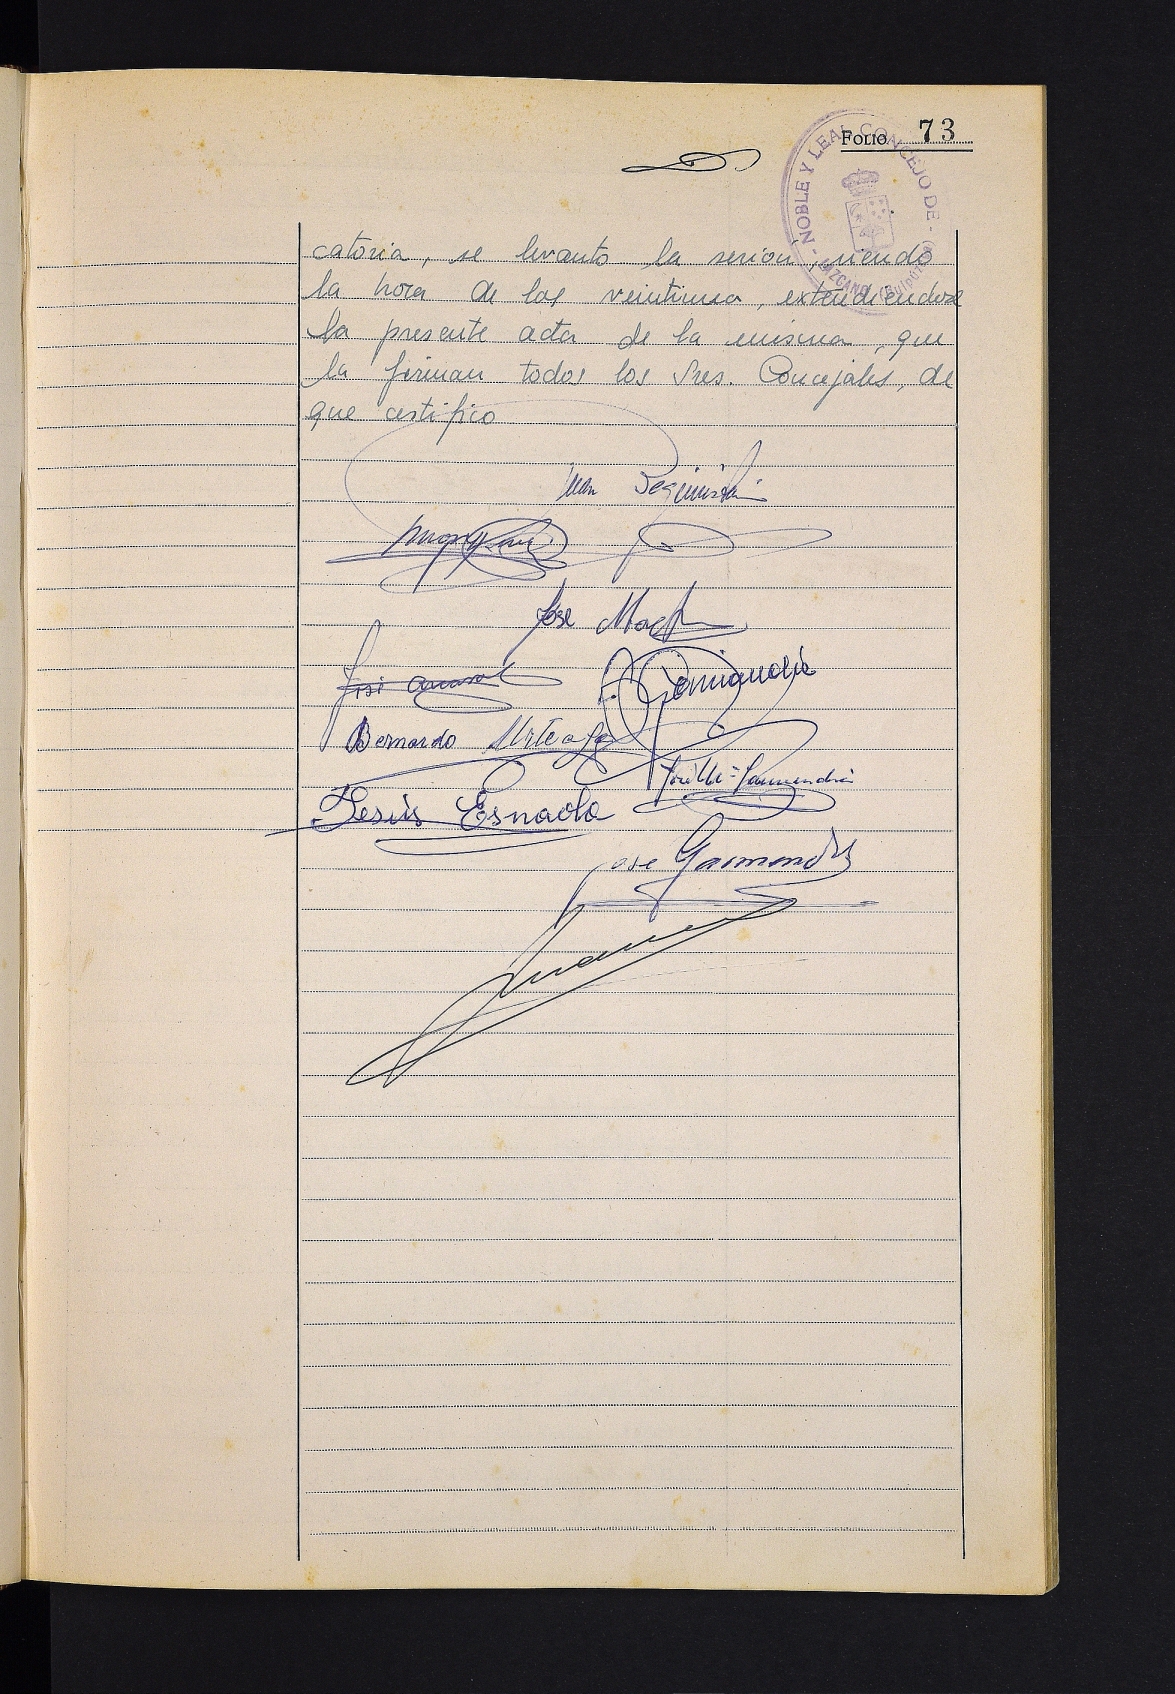 FOLIO 73
- NOBLE Y LEAL CONCEJO DE - LAZCANO (Guipúzcoa)
catoria, se levanto la sesion, siendo
la hora de las veintiuna, extendiendose
la presente acta de la misma, que
la firman todos los Sres. Concejales, de
que certifico
Juan
Jose
José
Bernardo Urteaga
Jesús Esnaola
Jose Garmendia